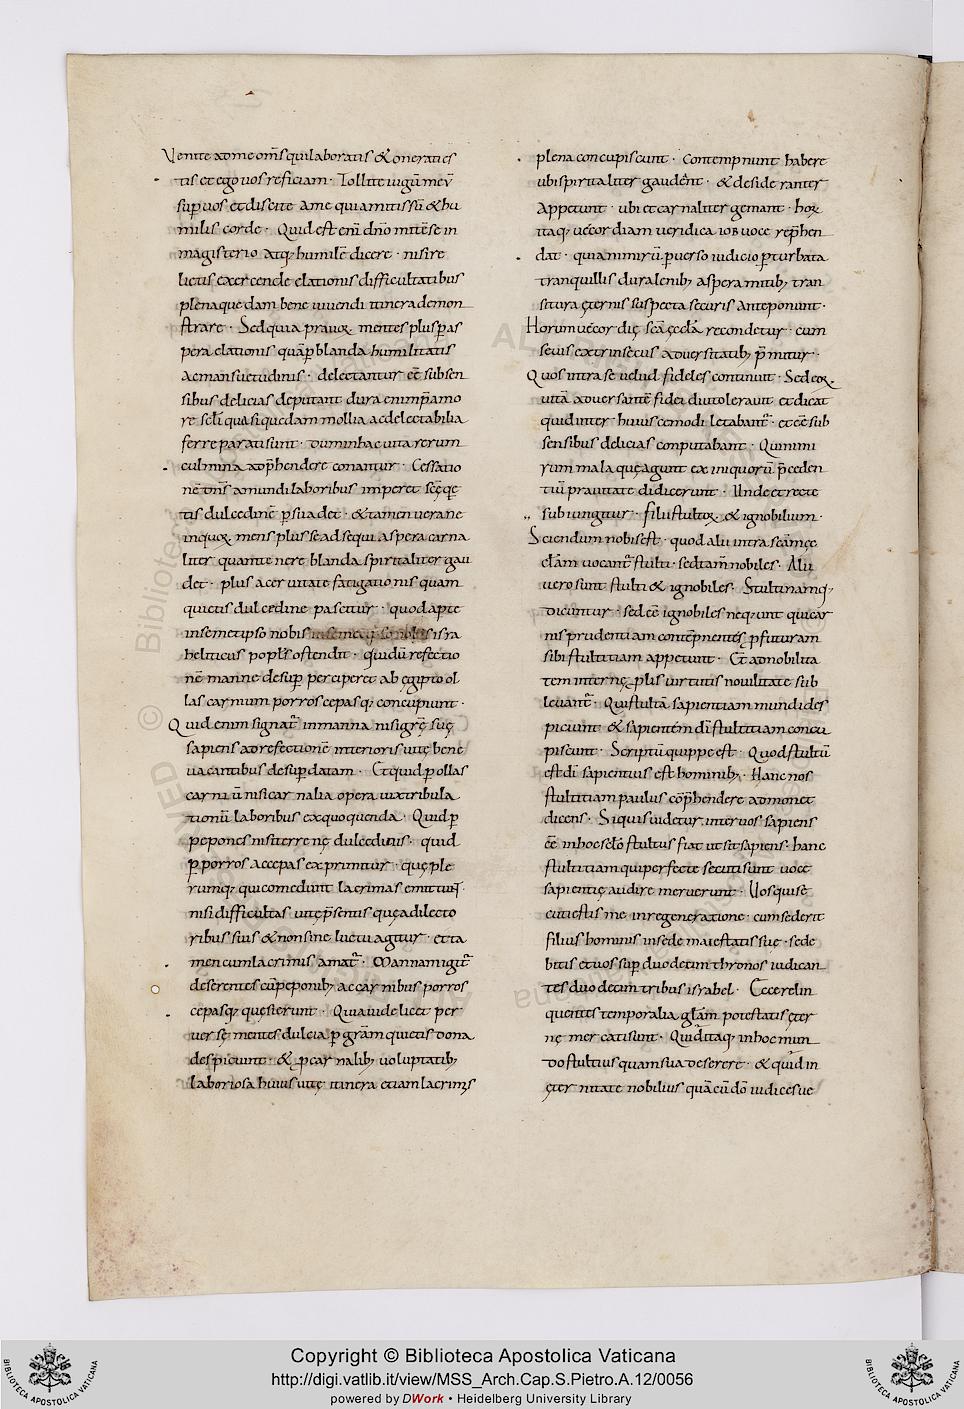 Venite adme om̅s quilaboratis & oneraties
tis et ego uos reficiam · Tollite iugu̅ meu̅
sup uos et discite a me quia mitis su̅ & hu
milis corde · Quid est eni̅ dn̅o mite̅ se in
magisterio atq; humile̅ dicere · nisi re
lictis exercende elationis difficultatibus
plena quedam bene uiuendi itinera demon
strare · Sed quia prauoꝝ mentes plus ꝑ as
pera elationis qua̅ ꝑ blanda humilitatis
ac mansuetudinis · delectantur ee̅ subsen
sibus delicias deputant dura enim p̅ amo
re sc̅li quasi quedam mollia ac delectabilia
ferre parati sunt · dum in hac uita rerum
culmina adp̅hendere conantur · Cessatio
ne̅ om̅s a mundi laboribus imperet sc̅eqꝫ
tis dulcedine̅ ꝑsuadet · & tamen uera ne
inquoꝝ mens plus se adsequi aspera carna
liter quam tenere blanda spiritaliter gau
det · plus acer uitate fatigationis quam
quietis dulcedine pascitur · quod apte
in semetipso nobis isra
heliticus popls̅ ostendit · qui du̅ refectio
ne̅ manne desup perciperet ab ęgipto ol
las carnium porros cepasq; concupiunt ·
Quid enim signat̅ in manna nisi gr̅ę suę
sapiens ad refectione̅ interioris uitę bene
uacantibus desup datam · Et quid ꝑ ollas
carniu̅ nisi carnalia opera uix tribula
tionu̅ laboribus exquoquenda · Quid ꝑ
pepones nisi terrenę dulcedinis · quid
ꝑ porros ac cepas exprimitur · quę ple
rumq; qui comedunt lacrimas emittunt ·
nisi difficultas uitę p̅sentis quę a dilecto
ribus suis & non sine luctu agitur · et ta
men cum lacrimis amat̅ · Manna igit̅
deserentes cu̅ peponib; ac carnibus porros
cepasq; quęsierunt · Quia uidelicet per
uersę mentes dulcia ꝑ gr̅am quietis dona
despiciunt · & ꝑ carnalib; uoluptatib;
laboriosa huius uitę itinera etiam lacrimis
plena concupiscunt · Contempnunt habere
ubi spiritaliter gaudent · & desideranter
appetunt · ubi et carnaliter gemant · hoꝝ
itaq; uecordiam ueridica iob uoce rep̅hen
dat · quia nimiru̅ ꝑuerso iudicio ꝑturbata
tranquillis dura lenib; aspera mitib; tran
situra ęternis suspecta securis anteponunt ·
Horum uecordię sc̅a ęccl̅a reconditur · cum
seuis extrinsecus aduersitatib; p̅mitur ·
Quos intra se uelud fideles continuit · Sed eoꝝ
uita̅ aduersante̅ fidei diu tolerauit et dicat
quid inter huiuscemodi letabant̅ · et ee̅ sub
sensibus delicias computabant · Qui mini
rum mala quę agunt ex iniquoru̅ p̅ceden
tiu̅ prauitate didicerunt · Unde et recte
subiungitur · filii stultoꝝ & ignobilium ·
Sciendum nobis est · quod alii intra sc̅am ęc
cl̅am uocant̅ stulti · sed tam̅ nobiles · Alii
uero sunt stulti & ignobiles · Stulti namq;
dicuntur · sed ee̅ ignobiles nequeunt qui car
nis prudentiam conte̅pnentes ꝑfuturam
sibi stultitiam appetunt · Et ad nobilita
tem internę plis uirtutis nouitate sub
leuant̅ · Qui stulta̅ sapientiam mundi des
piciunt & sapiente̅m di̅ stultitiam concu
piscunt · Scriptu̅ quippe est · Quod stultu̅
est di̅ sapientius est hominib; · Hanc nos
stultitiam paulus co̅p̅hendere admonet
dicens · Si quis uidetur inter uos sapiens
ee̅ in hoc sc̅lo stultus fiat ut sit sapiens · hanc
stultitiam qui perfecte secuti sunt uoce
sapientię audire meruerunt · Uos qui se
cuti estis me in regeneratione · cum sederit
filius hominis in sede maiestatis suę · sede
bitis et uos sup duodecim thronos iudican
tes duodecim tribus israhel · Ecce relin
quentes temporalia gl̅am potestatis ęter
nę mercati sunt · Quid itaq; in hoc mun
do stultius quam sua deserere · & quid in
ęternitate nobilius qua̅ cu̅ do̅ iudices ue
Copyright © Biblioteca Apostolica Vaticana
http://digi.vatlib.it/view/MSS_Arch.Cap.S.Pietro.A.12/0056
powered by DWork • Heidelberg University Library
BIBLIOTECA APOSTOLICA VATICANA
BIBLIOTECA APOSTOLICA VATICANA